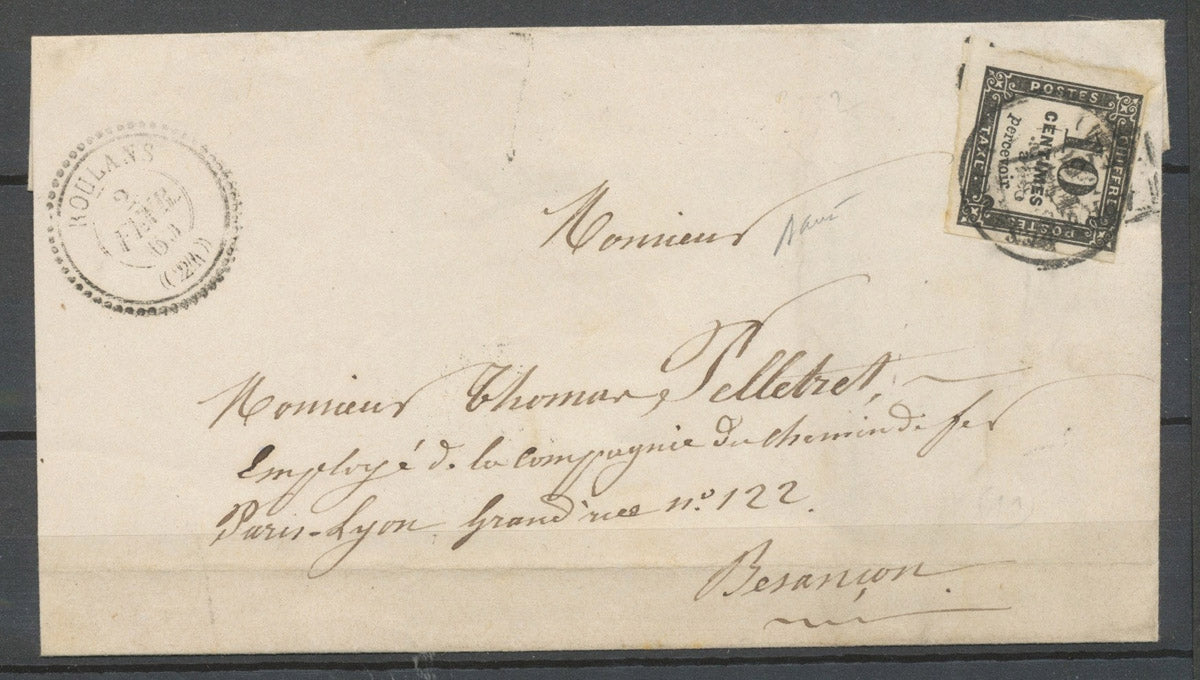 ROULANS
2
FEVR.
63
(24)
POSTES
CHIFFRE
TAXE
POSTES
10
CENTIMES
à
percevoir
Monsieur
Monsieur Thomas Pelletret,
Employé de la compagnie du chemin de fer
Paris-Lyon Grand'rue n° 122.
Besançon